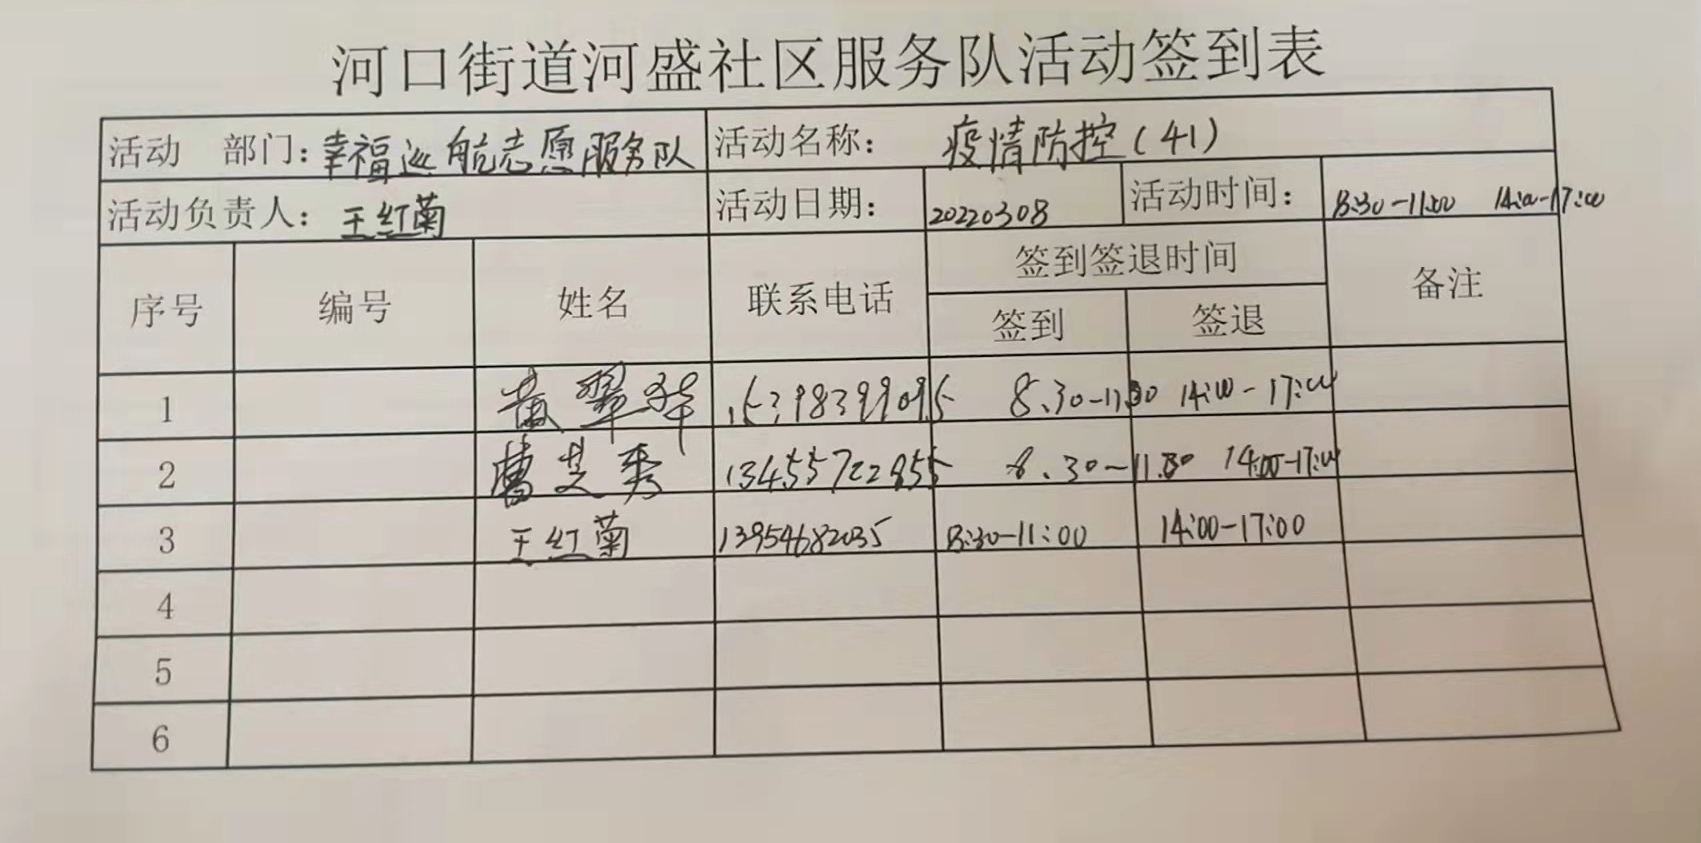 河口街道河盛社区服务队活动签到表
活动 部门：幸福巡航志愿服务队 活动名称： 疫情防控（41）
活动负责人：王红菊 活动日期： 20220308 活动时间： 8:30-11:00 14:00-17:00
序号 编号 姓名 联系电话 签到签退时间 备注
签到 签退
1 黄翠华 15398399095 8.30-11.30 14:00-17:00
2 芝秀 13455722855 8.30-11.30 14:00-17:00
3 王红菊 13954682035 8:30-11:00 14:00-17:00
4
5
6